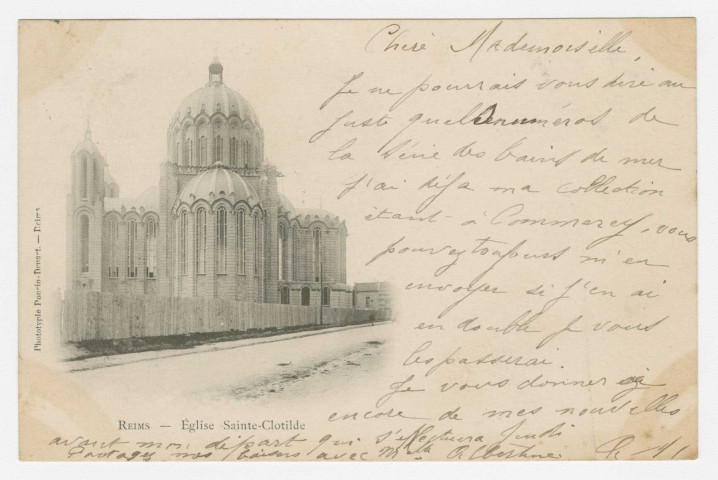 Chère Mademoiselle,
Je ne pourrais vous dire au
juste quels numéros de
la série des bains de mer
j'ai déja ma collection
étant à Commercy, vous
pouvez toujours m'en
envoyer si j'en ai
en double je vous
les passerai.
Je vous donnerai
encore de mes nouvelles
avant mon départ qui s'effectuera Jeudi
Partagez nos baisers avec Mlle Albertine
REIMS — Église Sainte-Clotilde
Phototypie — Reims